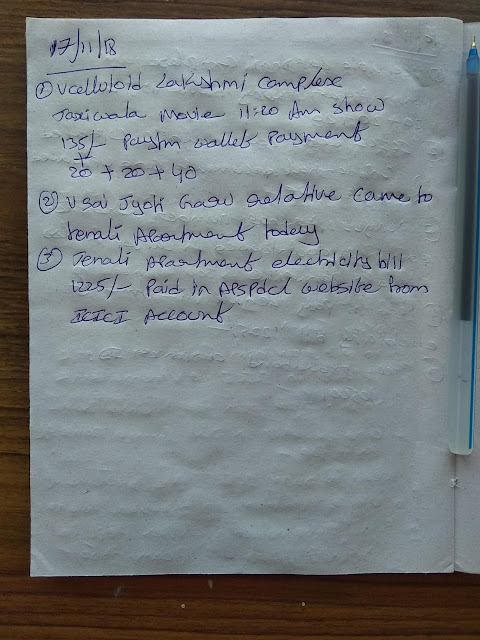 17/11/18
① Vcelluloid Lakshmi Complex
Taxiwala Movie 11:20 Am show
135/- Paytm wallet Payment
+
20 + 20 + 40
② V Sai Jyoti Garu relative came to
Tenali Apartment today
③ Tenali Apartment electricity bill
1225/- Paid in APSPdcl website from
ICICI Account